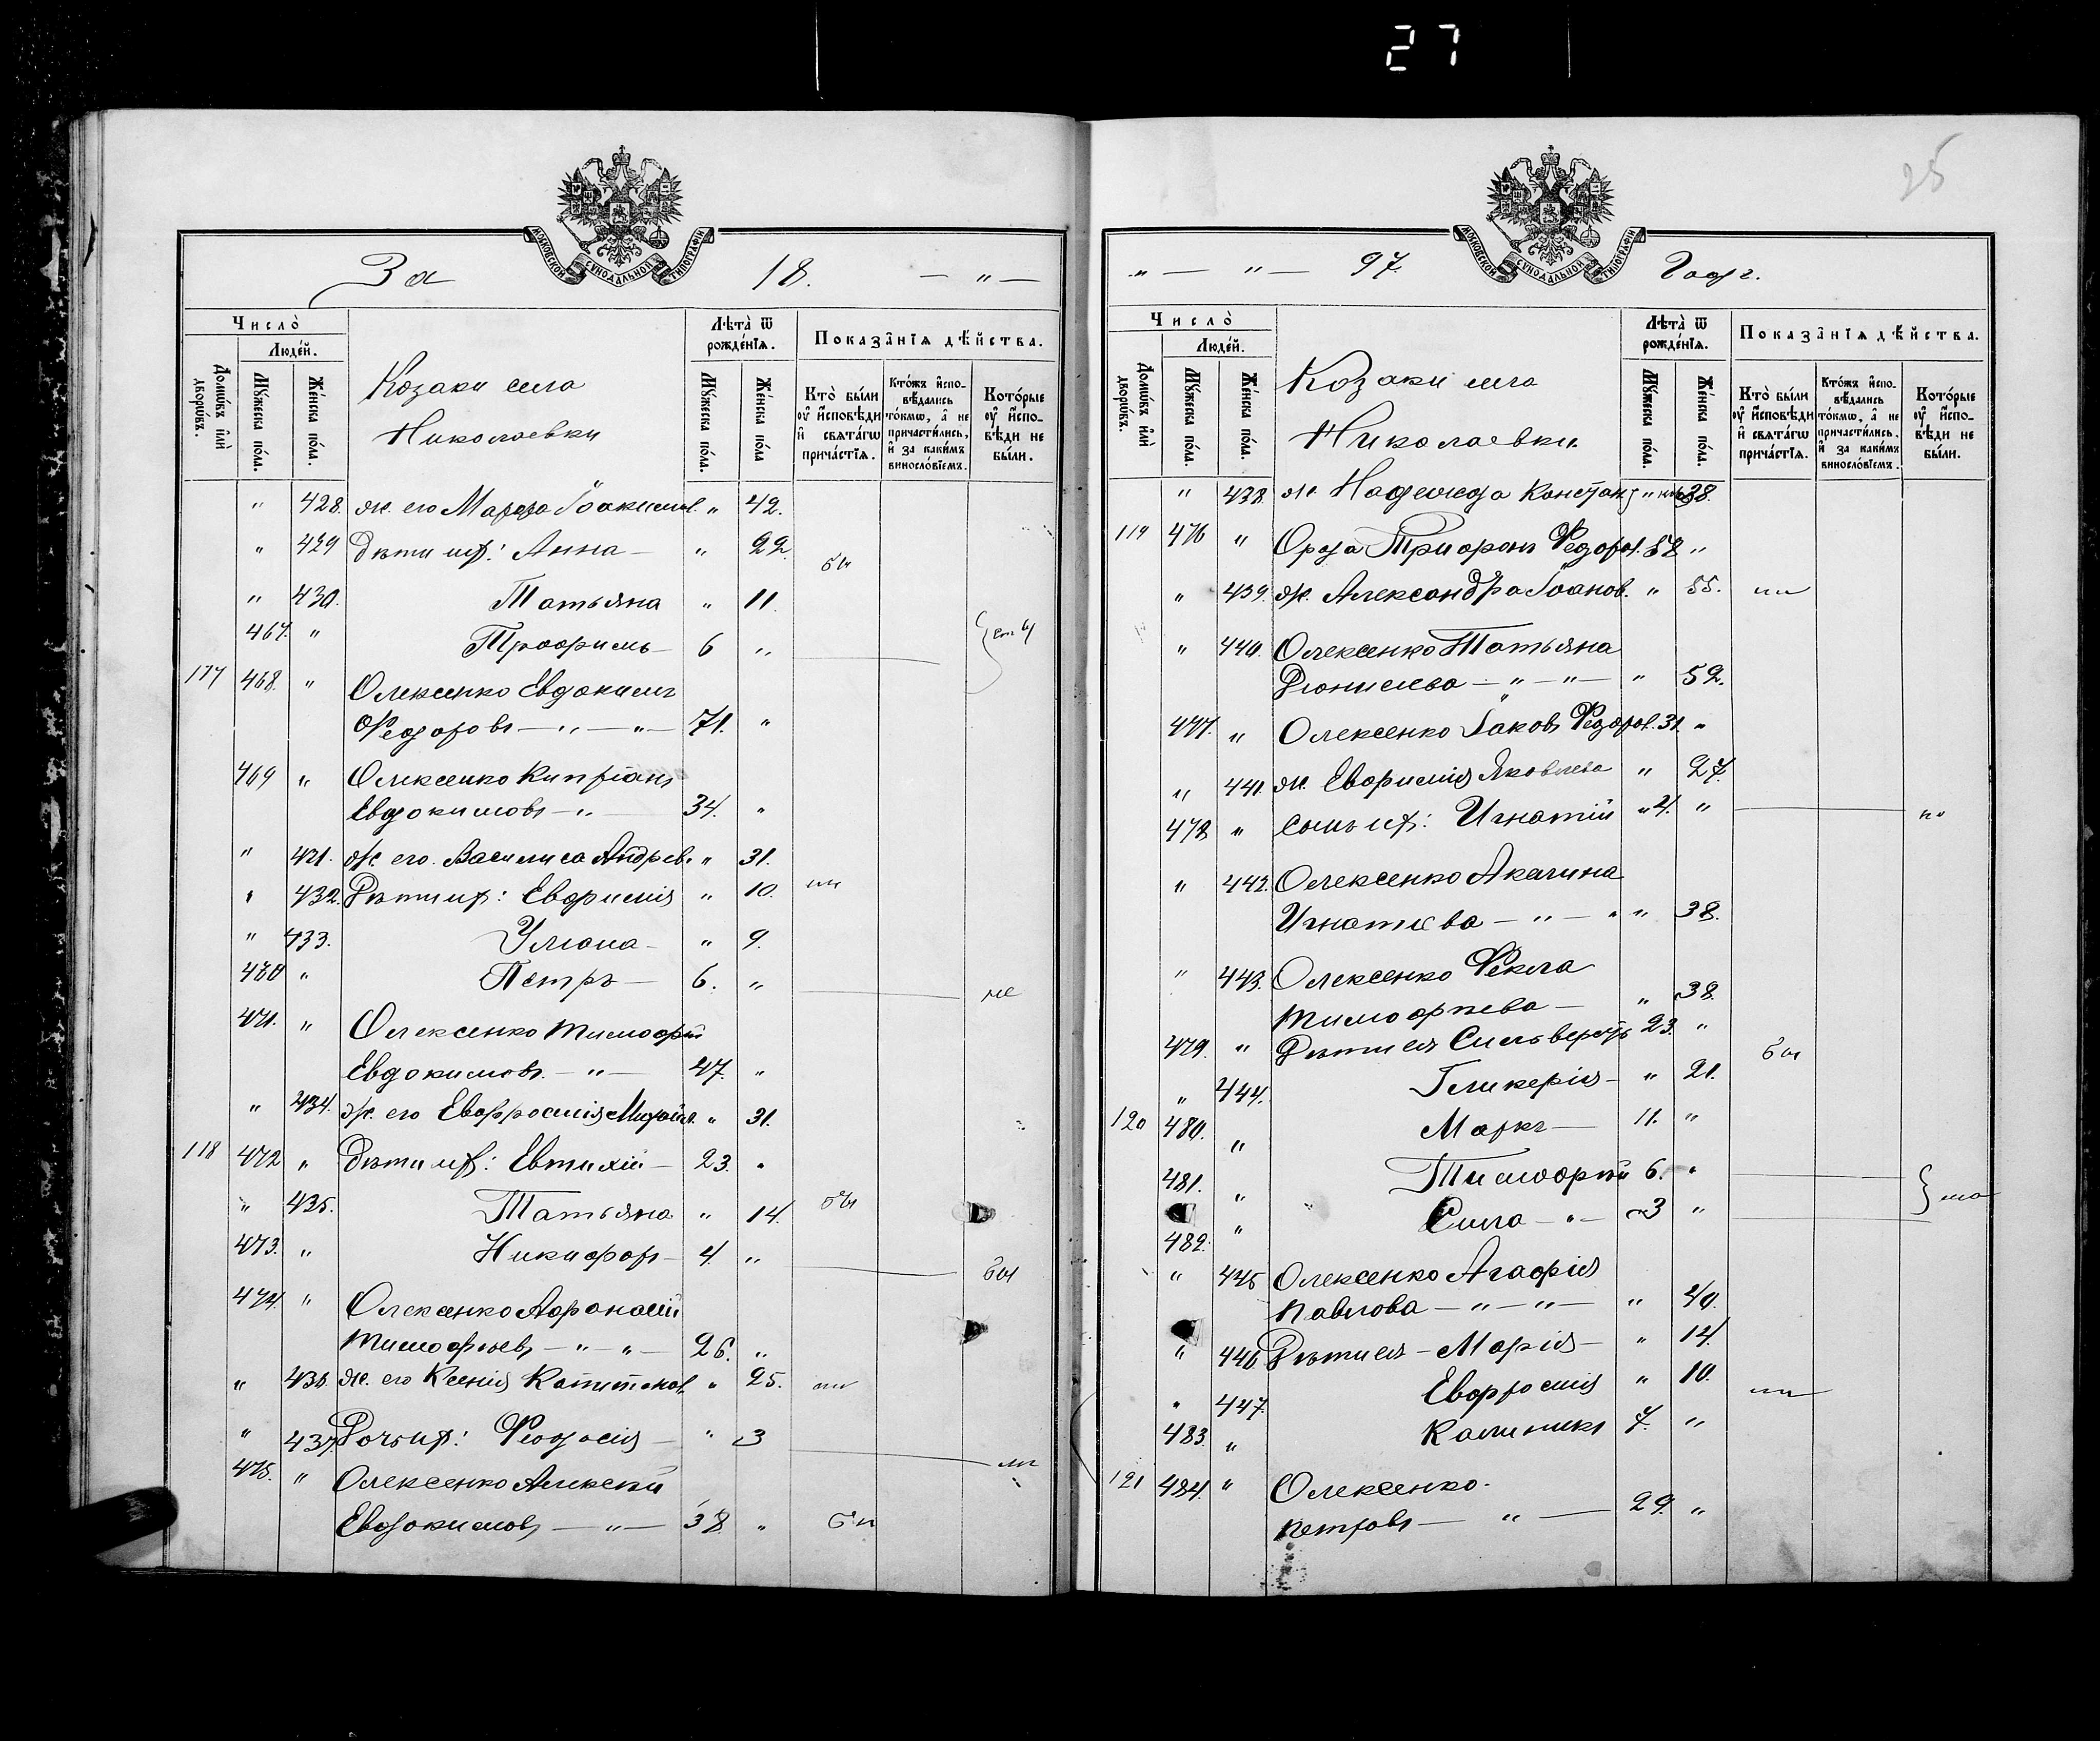 27
25
МОСКОВСКОЙ СѴНОДАЛЬНОЙ ТИПОГРАФІИ
За 18. — " —
Число̀
Людéй.
Домѡ́въ и҆лѝ дворѡ́въ.
Мꙋ́жеска по́ла.
Же́нска по́ла.
Козаки села
Николаевки
Лѣ́та ѿ рожде́нїѧ.
Мꙋ́жеска по́ла.
Же́нска по́ла
Показа̑нїѧ дѣ́йства.
Ктѡ̀ бы́ли ᲂу҆ и҆́сповѣди и҆ свѧта́гѡ прича́стїѧ.
Кто́жъ и҆спо-вѣ́дались то́кмѡ, а҆ не причасти́лись, и҆ за каки́мъ винослѡ́вїемъ.
Кото́рые ᲂу҆ и҆́спо-вѣди не бы́ли.
" 428. ж. его Марфа Іоакимов. " 42.
" 429 Дѣти их: Анна — " 22.
бы
" 430. Татьяна " 11.
467. " Трофимъ — 6 "
117 468. " Олексенко Евдокимъ
Феодоровъ — " — " — 71. "
469 " Олексенко Кипріанъ
Евдокимовъ — " — 34. "
" 431. ж. его Василиса Андреев. " 31.
" 432. Дѣти их: Евфимія " 10. ли
" 433. Уліана — " 9.
470 " Петръ — 6. "
не
471. " Олексенко Тимофѣй
Евдокимовъ — " — 47. "
" 434. ж. его Евфросинія Михайл. " 31.
118 472 " Дѣти их: Евтихій — 23. "
" 435. Татьяна " 14. бы
473. " Никифоръ — 4. "
бы
474. " Олексенко Афанасій
Тимофѣевъ — " — " — 26. "
" 436. ж. его Ксенія Капитонов. " 25. ли
" 437. Дочь их: Феодосія — " 3
ли
475. " Олексенко Алексѣй
Евдокимовъ — " — 38 " бы
" — " — 97. Годъ.
МОСКОВСКОЙ СѴНОДАЛЬНОЙ ТИПОГРАФІИ
Число̀
Людéй.
Домѡ́въ и҆лѝ дворѡ́въ.
Мꙋ́жеска по́ла.
Же́нска по́ла.
Козаки села
Николаевки.
Лѣ́та ѿ рожде́нїѧ.
Мꙋ́жеска по́ла.
Же́нска по́ла.
Показа̑нїѧ дѣ́йства.
Ктѡ̀ бы́ли ᲂу҆ и҆́сповѣди и҆ свѧта́гѡ прича́стїѧ.
Кто́жъ и҆спо-вѣ́дались то́кмѡ, а҆ не причасти́лись, и҆ за каки́мъ винослѡ́вїемъ.
Кото́рые ᲂу҆ и҆́спо-вѣди не бы́ли.
" 438. ж. Надежда Констант. " 38.
119 476 " Трифонъ Федоров. 58 "
" 439. ж. Александра Іоанов. " 55. ли
" 440. Олексенко Татьяна
Діонисіева — " — " — " 52.
477. " Олексенко Іаковъ Федоров. 31. "
" 441. ж. Евфимія Яковлева " 27.
478 " Сынъ их: Игнатій 4. "
" 442. Олексенко Акилина
Игнатіева — " — " " 38.
" 443. Олексенко Фекла
Тимофѣева — " 38.
479. " Дѣти ея Сильверстъ 23. "
бы
" 444. Гликерія — " 21.
120 480. " Маркъ — 11. "
481. " Тимофѣй 6. "
482. " Сила — " — 3 "
" 445 Олексенко Агафія
Павлова — " — " — " 40.
" 446 Дѣти ея — Марія — " 14.
" 447. Евфросинія " 10. ли
483. " Калиникъ 7. "
121 484. " Олексенко
Петровъ — " — 29. "